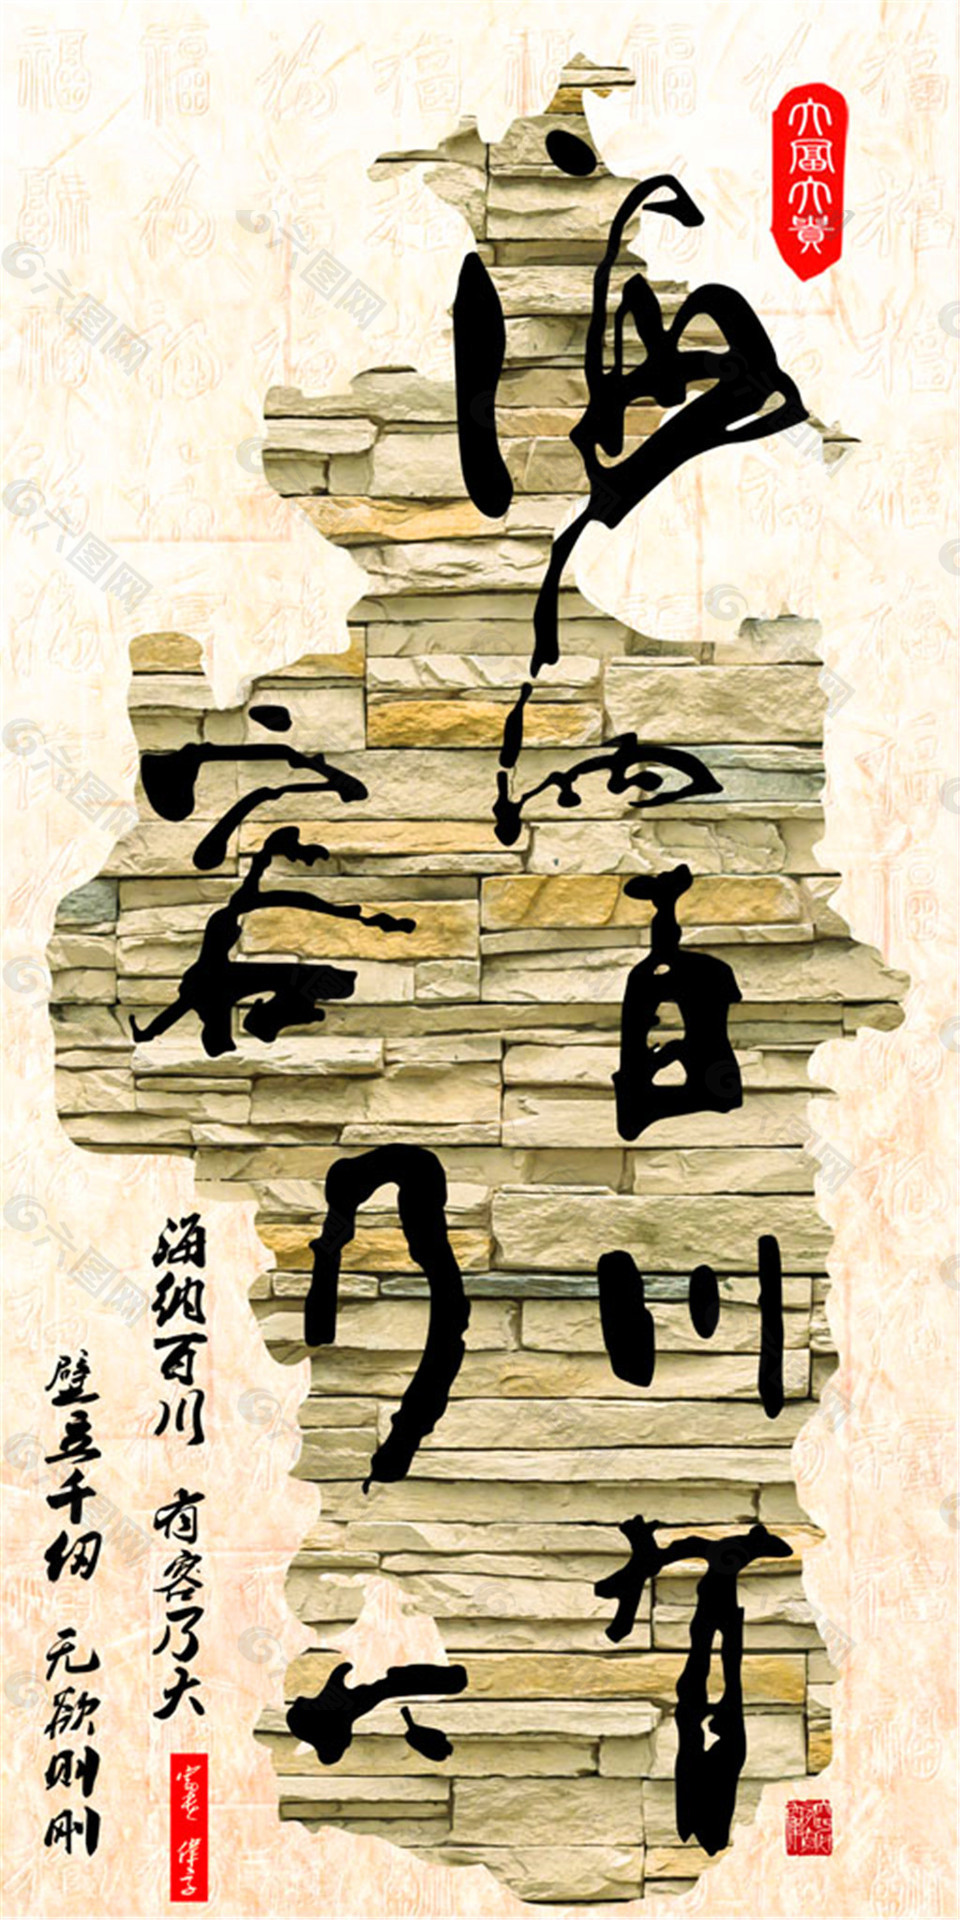 大富大贵
海纳百川有
容乃大
海纳百川 有容乃大
壁立千仞 无欲则刚